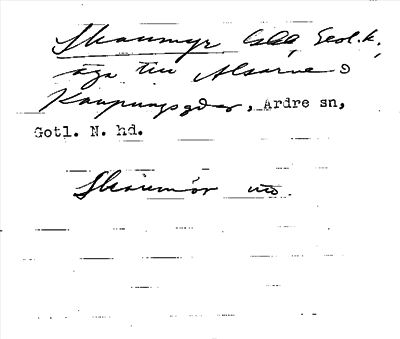 Skaumyr Geol.k.,
äga till Alsarve o
Kaupungsgdar, Ardre sn,
Gotl. N. hd.
Skäumör